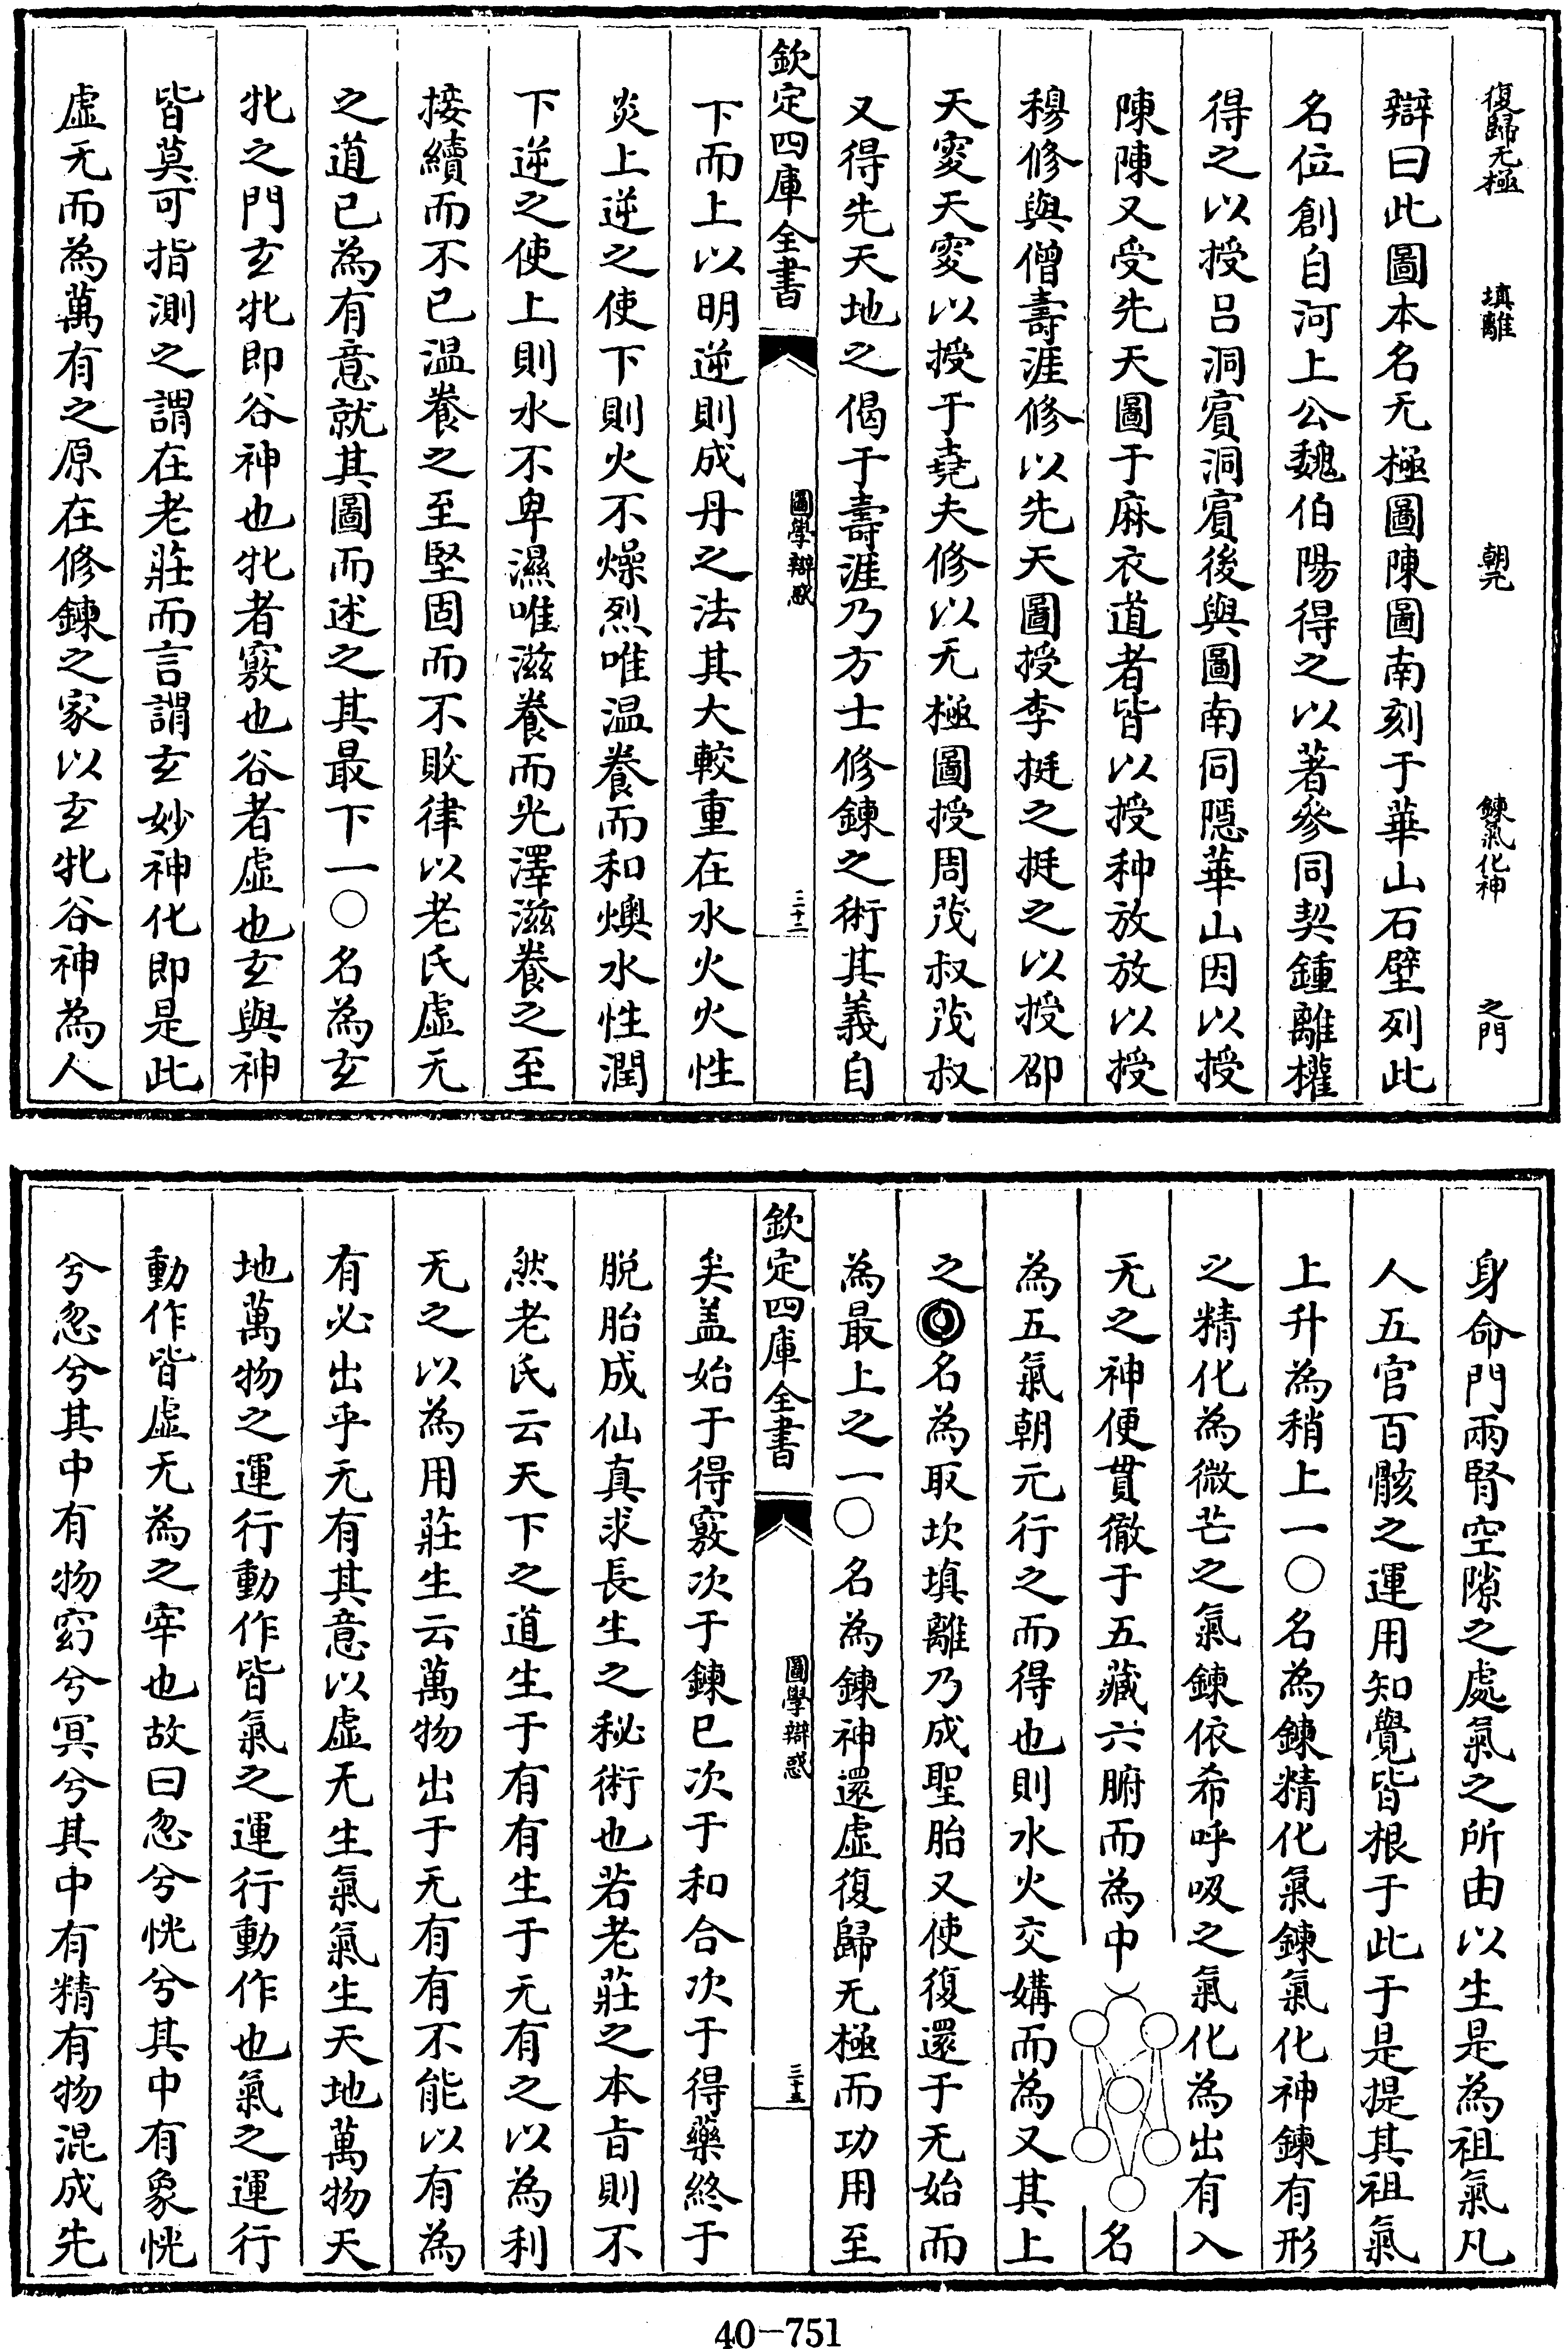 復歸无極　填離　朝元　鍊氣化神　之門
辯曰此圖本名无極圖陳圖南刻于華山石壁列此
名位創自河上公魏伯陽得之以著參同契鍾離權
得之以授呂洞賓洞賓後與圖南同隱華山因以授
陳陳又受先天圖于麻衣道者皆以授种放放以授
穆修與僧壽涯修以先天圖授李挺之挺之以授邵
天叟天叟以授于堯夫修以无極圖授周茂叔茂叔
又得先天地之偈于壽涯乃方士修鍊之術其義自
欽定四庫全書　圖學辯惑　三十二
下而上以明逆則成丹之法其大較重在水火火性
炎上逆之使下則火不燥烈唯温養而和燠水性潤
下逆之使上則水不卑濕唯滋養而光澤滋養之至
接續而不已温養之至堅固而不敗律以老氏虛无
之道已為有意就其圖而述之其最下一○名為玄
牝之門玄牝即谷神也牝者竅也谷者虛也玄與神
皆莫可指測之謂在老莊而言謂玄妙神化即是此
虛无而為萬有之原在修鍊之家以玄牝谷神為人
身命門兩腎空隙之處氣之所由以生是為祖氣凡
人五官百骸之運用知覺皆根于此于是提其祖氣
上升為稍上一○名為鍊精化氣鍊氣化神鍊有形
之精化為微芒之氣鍊依希呼吸之氣化為出有入
无之神便貫徹于五藏六腑而為中名
為五氣朝元行之而得也則水火交媾而為又其上
之◎名為取坎填離乃成聖胎又使復還于无始而
為最上之一○名為鍊神還虛復歸无極而功用至
欽定四庫全書　圖學辯惑　三十五
矣盖始于得竅次于鍊已次于和合次于得藥終于
脱胎成仙真求長生之秘術也若老莊之本旨則不
然老氏云天下之道生于有有生于无有之以為利
无之以為用莊生云萬物出于无有有不能以有為
有必出乎无有其意以虛无生氣氣生天地萬物天
地萬物之運行動作皆氣之運行動作也氣之運行
動作皆虛无為之宰也故曰忽兮恍兮其中有象恍
兮忽兮其中有物窈兮冥兮其中有精有物混成先
40-751